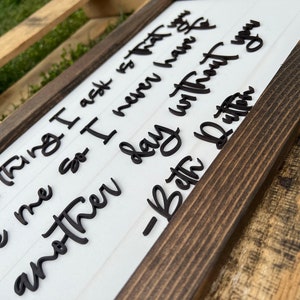 thing I ask is that you
me so I never have
another day without you
-Beth Dutton